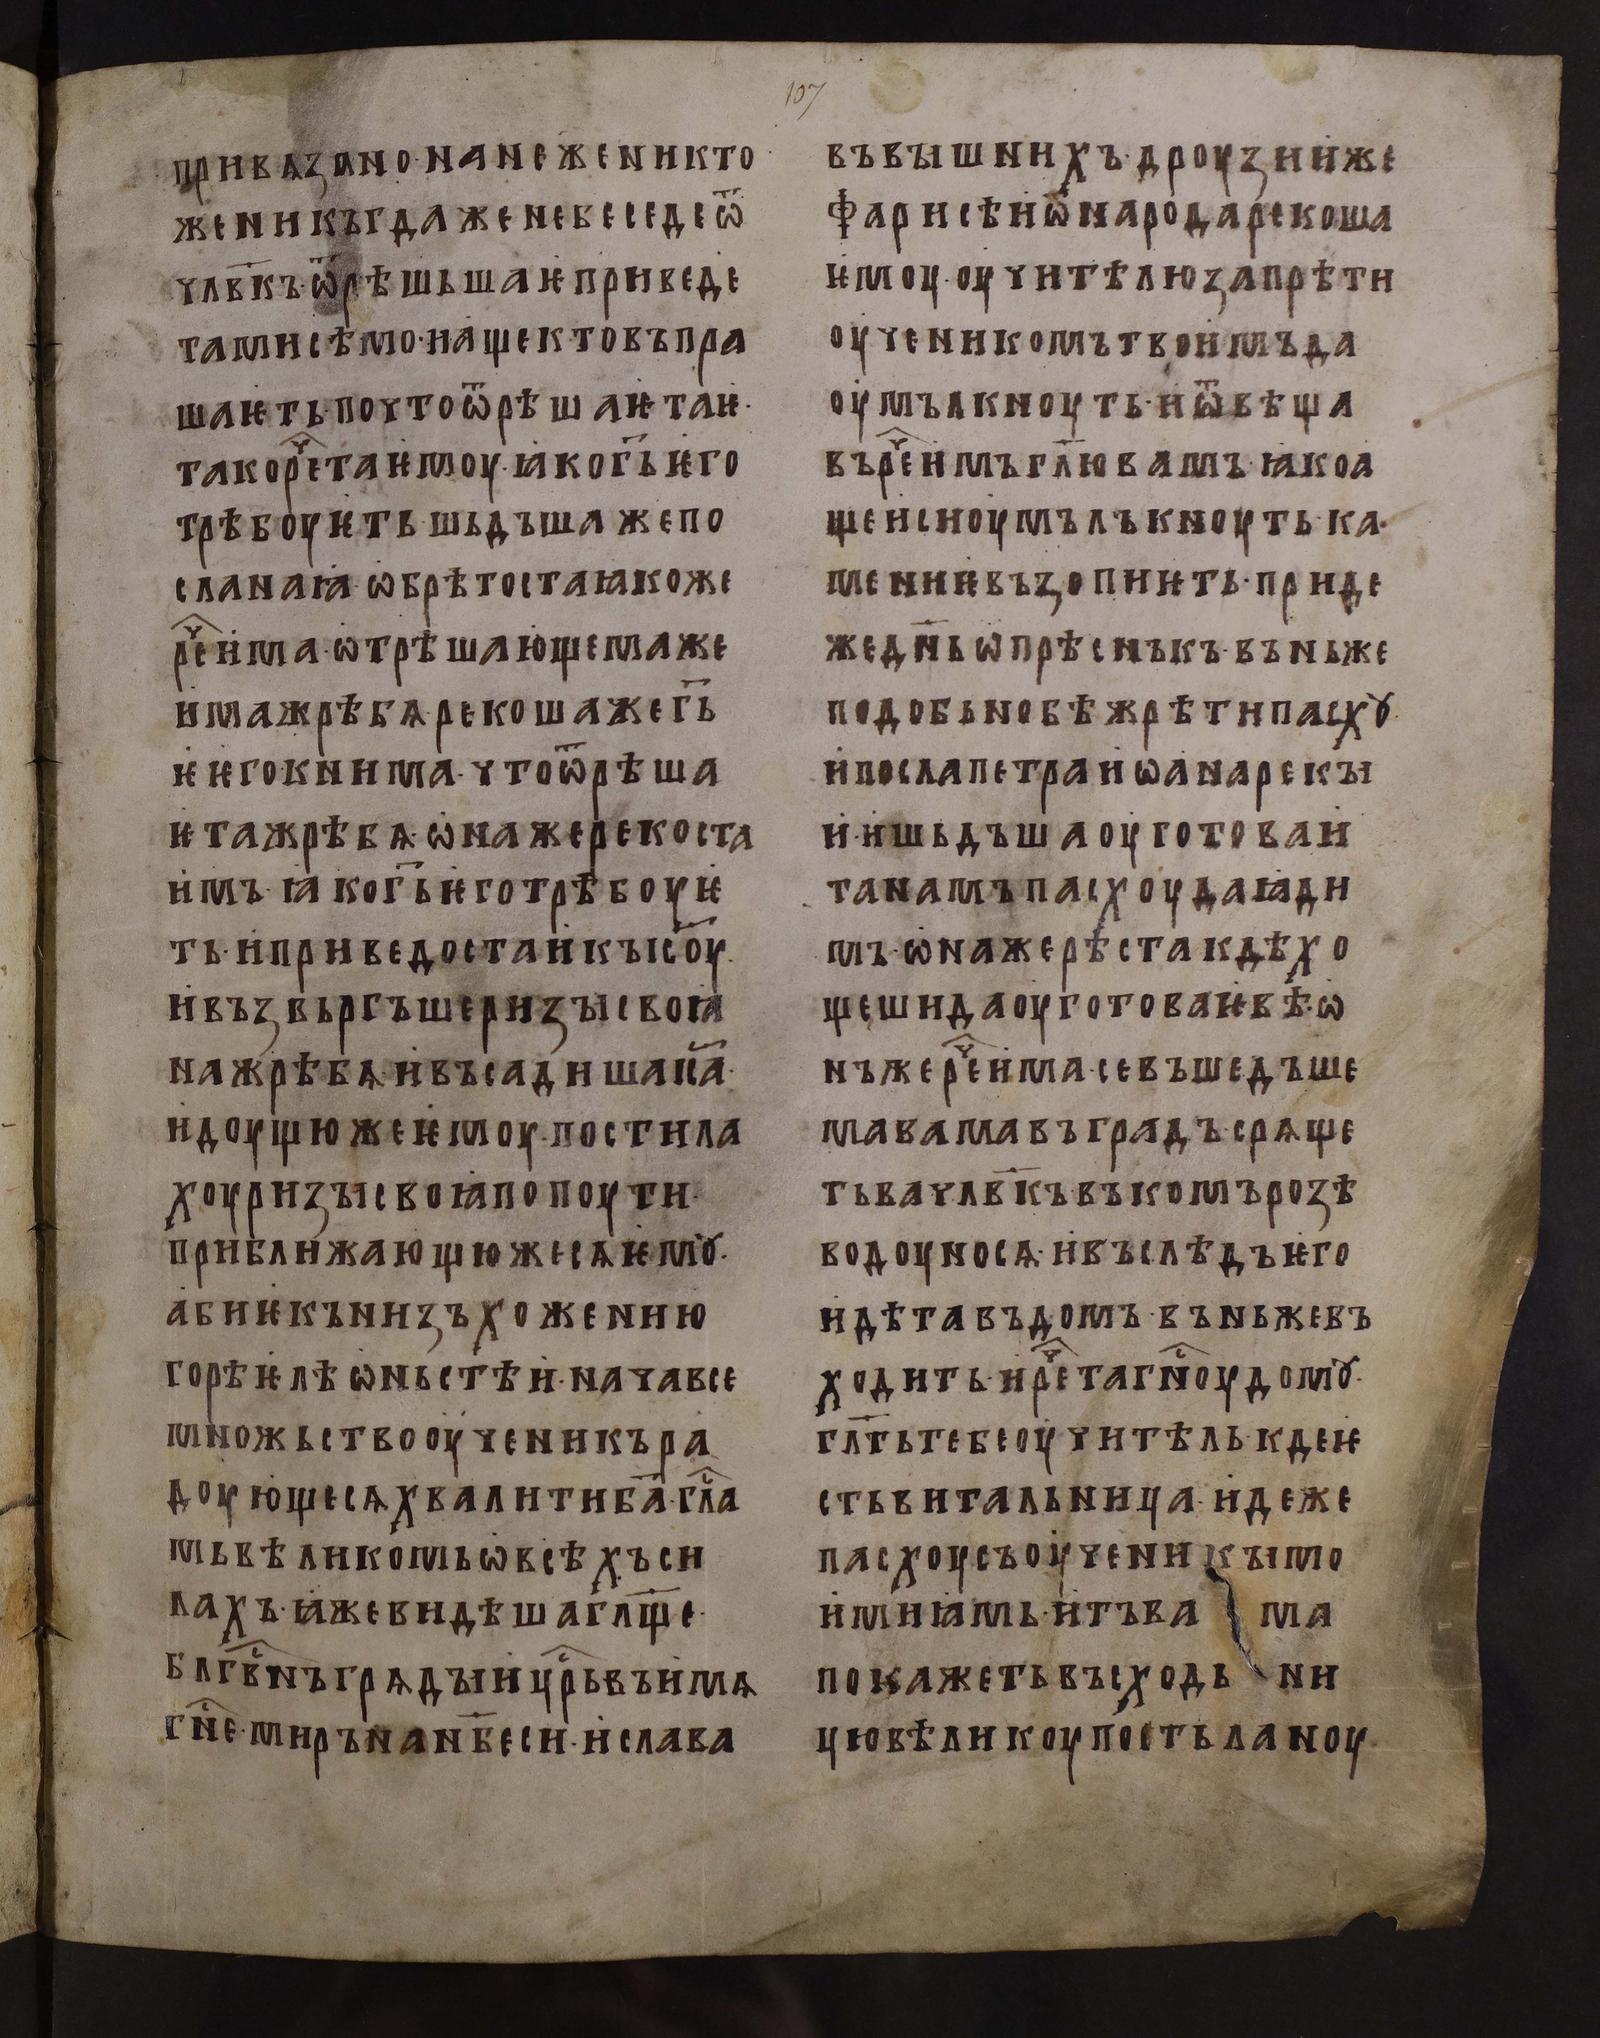 107
привѧзано·нанеженикто
женикъгдаженебеседеѿ
члв҃къ·ѿрѣшьшаѥприведе
тамисѣмо·иащектовъпра
шаѥть·почтоѿрѣшаѥтаѥ·
такорⷱ҇етаѥмоу·ꙗкогь҃ѥго
трѣбоуѥтьшьдъшажепо
сланаꙗ·ѡбрѣтостаꙗкоже
рⷱ҇еима·ѡтрѣшающемаже
имажрѣбѧ·рекошажегь҃
ѥѥгокнима·чтоѿрѣша
ѥтажрѣбѧ·ѡнажерекоста
имъ·ꙗкогь҃ѥготрѣбоуѥ
ть·иприведостаикъıсо҃у·
ивъзвьргъшеризъıсвоꙗ
нажрѣбѧ·ивъсадишаıса҃·
идоущюжеѥмоу·постила
хоуризъıсвоꙗпопоути·
приближающюжесѧѥмꙋ·
абиѥкънизъхожению
горѣѥлѣѡньстѣи·начавсе
множьствооученикъра
доующесѧхвалитиба҃·глⷭ҇а
мьвѣликомьѡвсѣхъси
лахъ·ꙗжевидѣшагл҃ще·
блгвⷭ҇нъгрѧдъıицрⷭ҇ьвъимѧ
гнⷭ҇е·миръnанб҃еси·ислава
въвъıшнихъ·дроузииже
фарисѣиѿнародарекоша
ѥмоу·оучитѣлюзапрѣти
оученикомътвоимъда
оумълкноуть·иѿвѣща
върⷱ҇еимъгл҃ювамъ·ꙗкоа
щеисиоумълъкноуть·ка·
мениѥвъзопиѥть·приде
жедн҃ьѡпрѣснъкъ·въньже
подобьнобѣжрѣтипасхꙋ·
ипослапетраиѡанарекъı
и·ишьдъшаоуготоваи
танамъпасхоудаꙗди
мъ·ѡнажерѣстакдѣхо
щешидаоуготоваѥвѣ·ѡ
нъжерⷱ҇еима·севъшедъше
мавамавъградъ·срѧще
тьвачлв҃къвъкомърозѣ
водоуносѧ·ивъслѣдъѥго
идѣтавъдомъ·въньжевъ
ходить·ирⷱ҇етагнⷭ҇оудомꙋ·
глт҃ьтебеоучитѣль·кдеѥ
стьвитальница·идеже
пасхоусъоученикъıмо
имиꙗмь·итъва ма
покажетьвъсходь ни
цювѣликоупостьланоу·